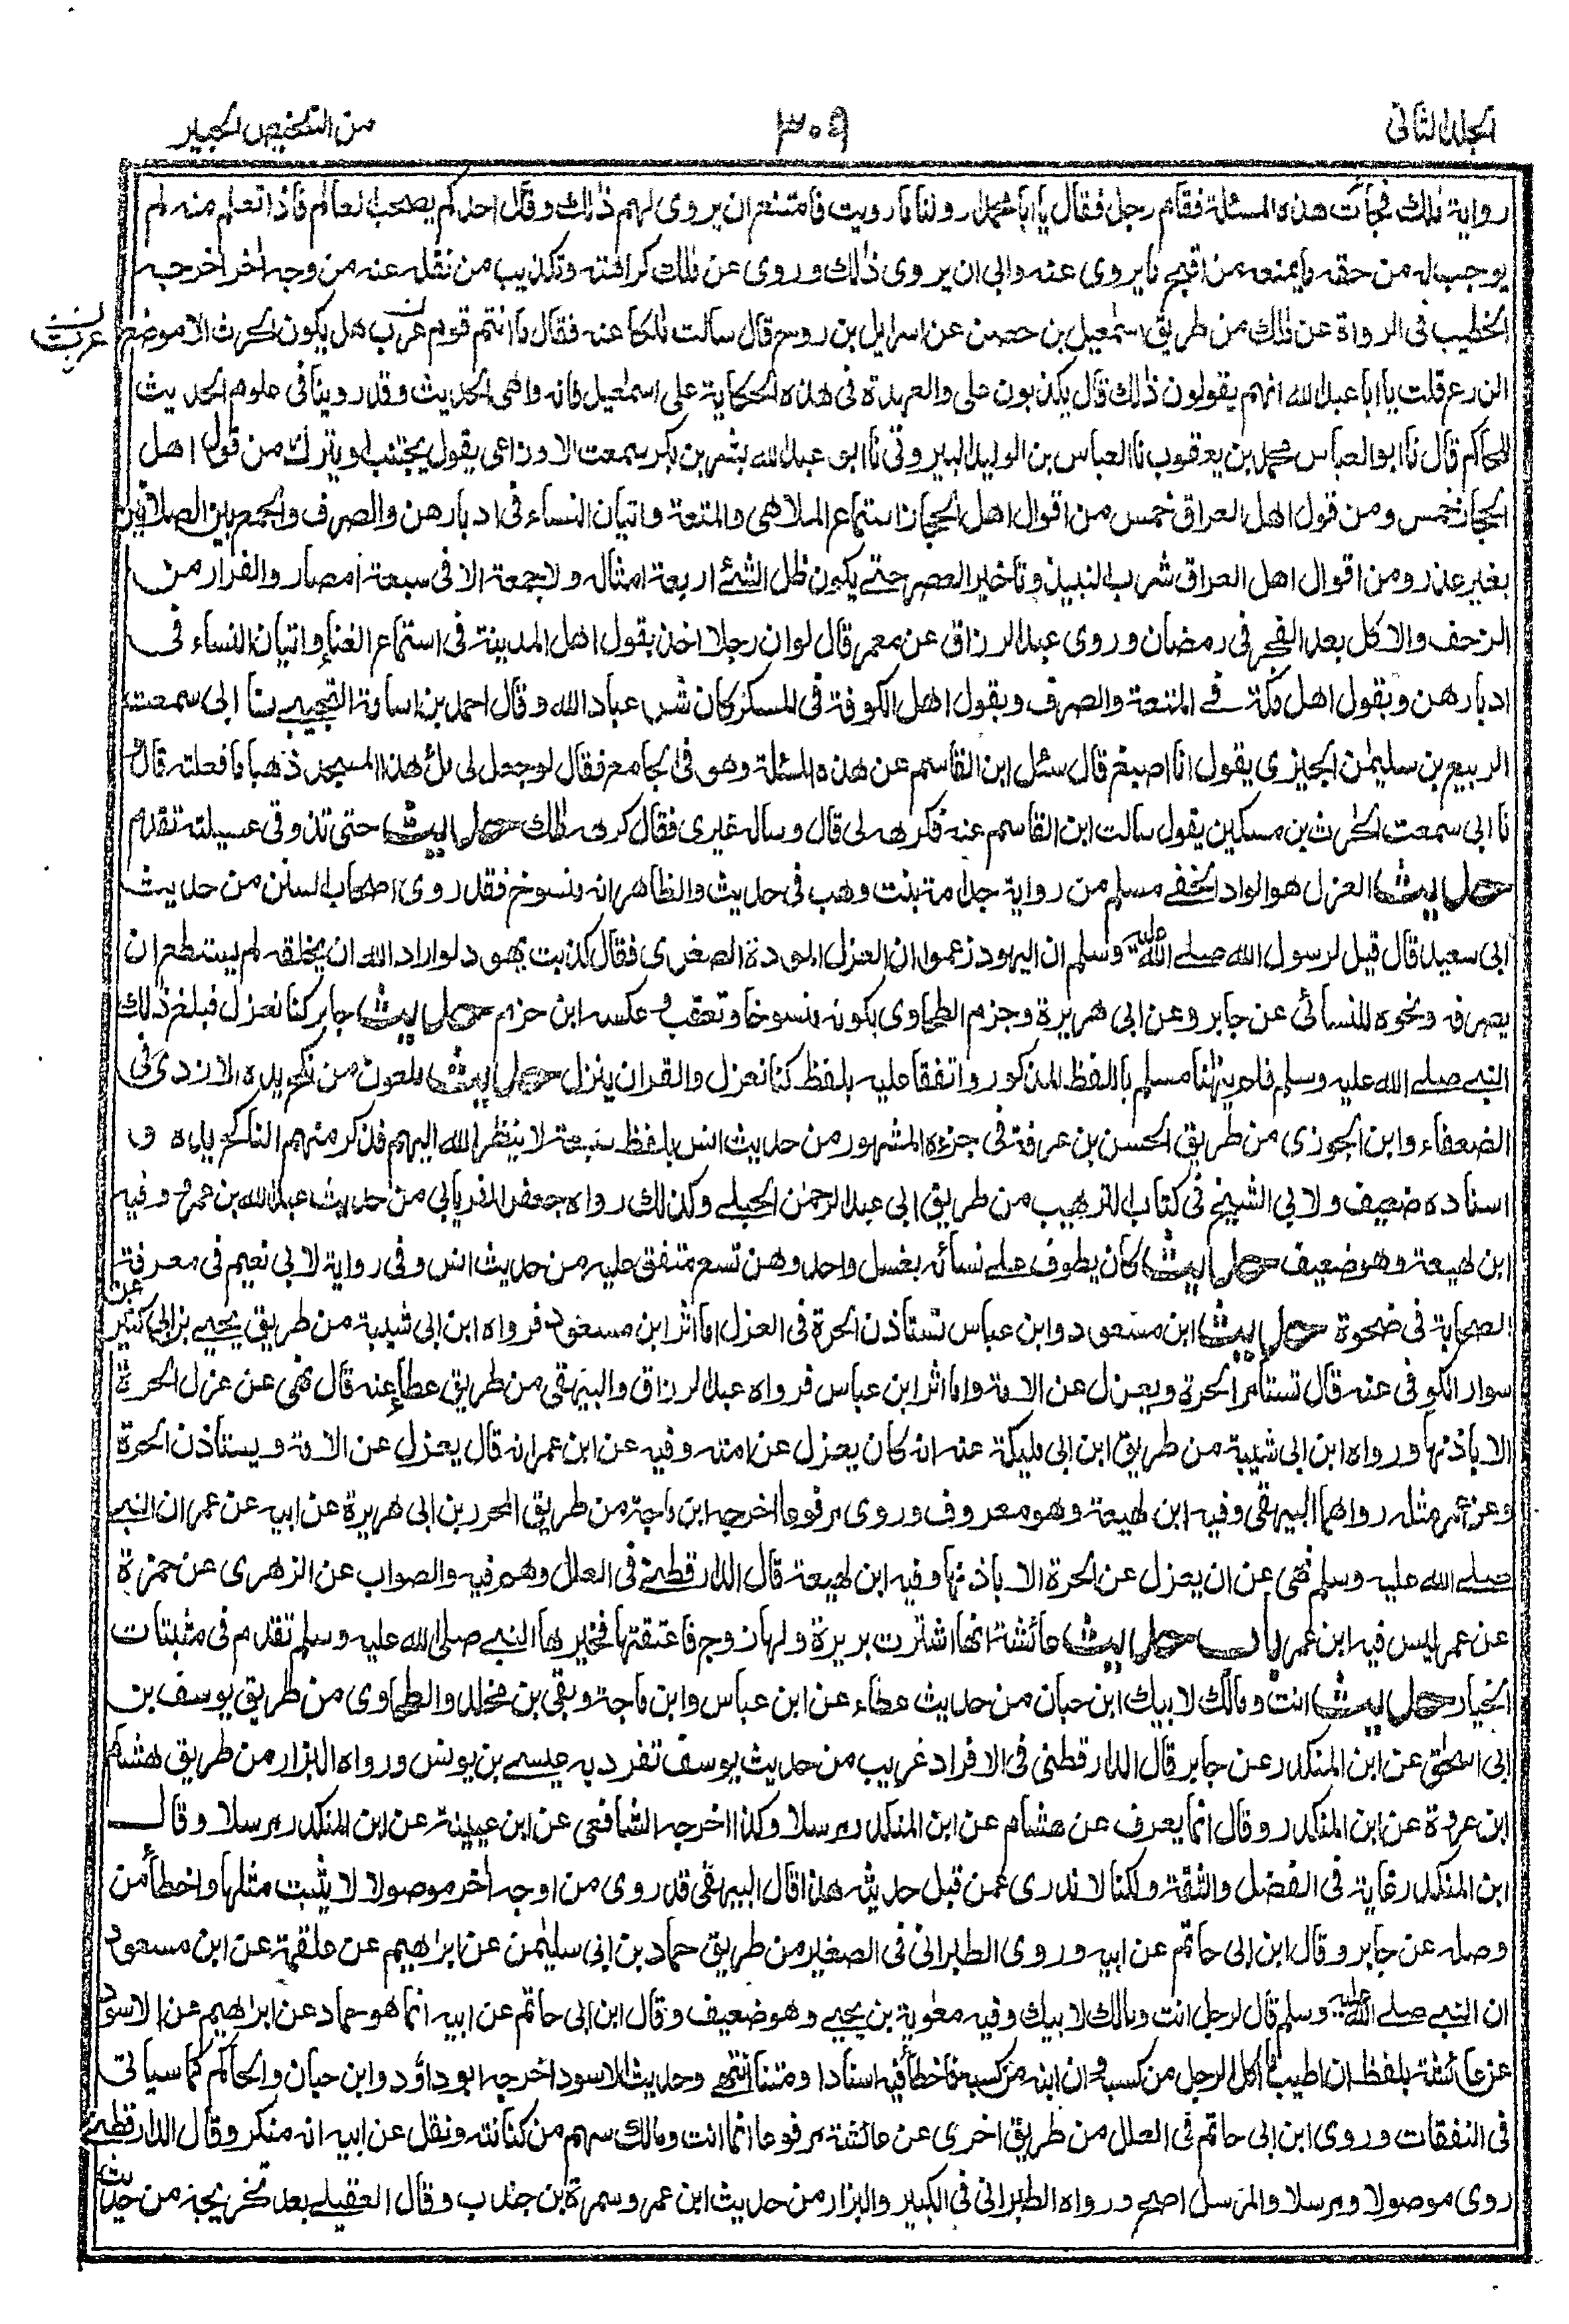 المجلد الثانى
٣٠٩
من التلخيص الحبير
رواية ذلك فجاءت هذه المسئلة فقام رجل فقال يا ابا محمد ارو لنا ما رويت فامتنع ان يروى لهم ذلك وقال احدكم يصحب العالم فاذا تعلم منه لم
يوجب له من حقه ما يمنعه من اقبح ما يروى عنه وابى ان يروى ذلك وروى عن ذلك كراهته وتكذيب من نقله عنه من وجه اخر اخرجه
الخطيب فى الرواة عن مالك من طريق اسمعيل بن حصن عن اسرايل بن روح قال سالت مالكا عنه فقال ما انتم قوم عرب هل يكون الحرث الا موضع
عرب
الزرع قلت يا ابا عبد الله انهم يقولون ذلك قال يكذبون على والعهدة فى هذه الحكاية على اسمعيل فانه واهى الحديث وقد روينا فى علوم الحديث
للحاكم قال نا ابو العباس محمد بن يعقوب نا العباس بن الوليد البيروتى نا ابو عبد الله بشر بن بكر سمعت الاوزاعى يقول يجتنب او يترك من قول اهل
الحجاز خمس ومن قول اهل العراق خمس من اقوال اهل الحجاز استماع الملاهى والمتعة واتيان النساء فى ادبارهن والصرف والجمع بين الصلاتين
بغير عذر ومن اقوال اهل العراق شرب النبيذ وتاخير العصر حتے يكون ظل الشئ اربعة امثاله ولا جمعة الا فى سبعة امصار والفرار من
الزحف والاكل بعد الفجر فى رمضان وروى عبد الرزاق عن معمر قال لو ان رجلا اخذ بقول اهل المدينة فى استماع الغناء واتيان النساء فى
ادبارهن وبقول اهل مكة فے المتعة والصرف وبقول اهل الكوفة فى المسكر كان شر عباد الله وقال احمد بن اسامة التجيبے نا ابى سمعت
الربيع بن سليمٰن الجيزى يقول انا اصبغ قال سئل ابن القاسم عن هذه المسئلة وهو فى الجامع فقال لو جعل لى ملئ هذا المسجد ذهبا ما فعلته قال
نا ابى سمعت الحٰرث بن مسكين يقول سالت ابن القاسم عنه فكرهه لى قال وساله غيرى فقال كرهه مالك حديث حتى تذوقى عسيلته تقدم
حديث العزل هو الواد الخفے مسلم من رواية جدامة بنت وهب فى حديث والظاهر انه منسوخ فقد روى اصحاب السنن من حديث
ابى سعيد قال قيل لرسول الله صلے الله عليه وسلم ان اليهود زعموا ان العزل الموءدة الصغرى فقال كذبت يهود لو اراد الله ان يخلقه لم يستطع ان
يصرفه ونحوه للنسائى عن جابر وعن ابى هريرة وجزم الطحاوى بكونه منسوخا وتعقب وعكسه ابن حزم حديث جابر كنا نعزل فبلغ ذلك
النبے صلے الله عليه وسلم فلم ينهنا مسلم باللفظ المذكور واتفقا عليه بلفظ كنا نعزل والقران ينزل حديث ملعون من نكح يده الازدى فى
الضعفاء وابن الجوزى من طريق الحسن بن عرفة فى جزءه المشهور من حديث انس بلفظ سبعة لا ينظر الله اليهم فذكر منهم الناكح يده و
اسناده ضعيف ولابى الشيخ فى كتاب الترهيب من طريق ابى عبد الرحمٰن الحبلے وكذلك رواه جعفر الفريابى من حديث عبد الله بن عمرو وفيه
ابن لهيعة وهو ضعيف حديث كان يطوف علے نسائه بغسل واحد وهن تسع متفق عليه من حديث انس وفى رواية لابى نعيم فى معرفة
الصحابة فى ضحوة حديث ابن مسعود وابن عباس تستاذن الحرة فى العزل اما اثر ابن مسعود فرواه ابن ابى شيبة من طريق يحيے بن ابى كثير عن
سوار الكوفى عنه قال تستامر الحرة ويعزل عن الامة واما اثر ابن عباس فرواه عبد الرزاق والبيهقى من طريق عطاء عنه قال نهى عن عزل الحرة
الا باذنها ورواه ابن ابى شيبة من طريق ابن ابى مليكة عنه انه كان يعزل عن امته وفيه عن ابن عمر انه قال يعزل عن الامة ويستاذن الحرة
وعن عمر مثله رواهما البيهقى وفيه ابن لهيعة وهو معروف وروى مرفوعا اخرجه ابن ماجة من طريق المحرر بن ابى هريرة عن ابيه عن عمر ان النبے
صلے الله عليه وسلم نهى عن ان يعزل عن الحرة الا باذنها وفيه ابن لهيعة قال الدارقطنے فى العلل وهم فيه والصواب عن الزهرى عن حمزة
عن عمر ليس فيه ابن عمر باب حديث عائشة انها اشترت بريرة ولها زوج فاعتقتها فخيرها النبے صلى الله عليه وسلم تقدم فى مثبتات
الخيار حديث انت ومالك لابيك ابن حبان من حديث عطاء عن ابن عباس وابن ماجة وبقى بن مخلد والطحاوى من طريق يوسف بن
ابى اسحٰق عن ابن المنكدر عن جابر قال الدارقطنى فى الافراد غريب من حديث يوسف تفرد به عيسے بن يونس ورواه البزار من طريق هشام
ابن عروة عن ابن المنكدر وقال انما يعرف عن هشام عن ابن المنكدر مرسلا وكذا اخرجه الشافعى عن ابن عيينة عن ابن المنكدر مرسلا وقال
ابن المنكدر غاية فى الفضل والثقة ولكنا لا ندرى عمن قبل حديثه هذا قال البيهقى قد روى من اوجه اخر موصولا لا يثبت مثلها واخطأ من
وصله عن جابر وقال ابن ابى حاتم عن ابيه وروى الطبرانى فى الصغير من طريق حماد بن ابى سليمٰن عن ابراهيم عن علقمة عن ابن مسعود
ان النبے صلے الله عليه وسلم قال لرجل انت ومالك لابيك وفيه معٰوية بن يحيے وهو ضعيف وقال ابن ابى حاتم عن ابيه انما هو حماد عن ابراهيم عن الاسود
عن عائشة بلفظ ان اطيب ما اكل الرجل من كسبه وان ابنه من كسبه فاخطأ فيه اسنادا ومتنا انتهے وحديث الاسود اخرجه ابو داؤد وابن حبان والحاكم كما سياتى
فى النفقات وروى ابن ابى حاتم فى العلل من طريق اخرى عن عائشة مرفوعا انما انت ومالك سهم من كنانته ونقل عن ابيه انه منكر وقال الدارقطنے
روى موصولا ومرسلا والمرسل اصح ورواه الطبرانى فى الكبير والبزار من حديث ابن عمر وسمرة بن جندب وقال العقيلے بعد تخريجه من حديث